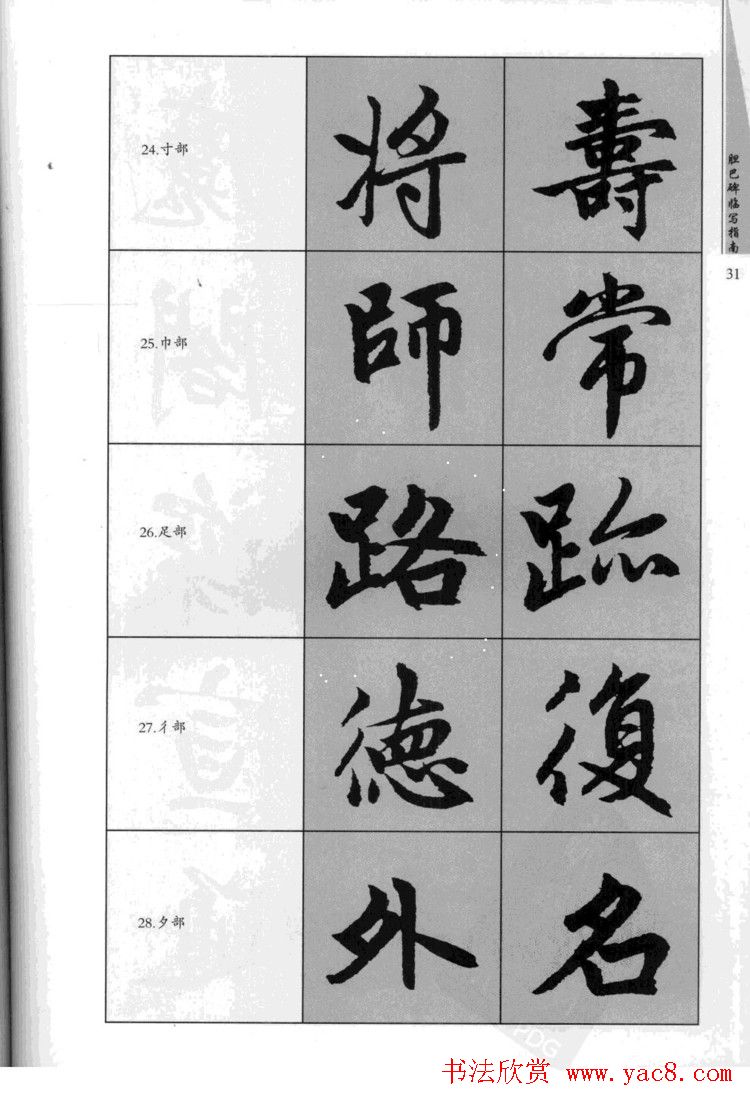 胆巴碑临写指南
31
24.寸部 将 壽
25.巾部 師 常
26.足部 路
27.彳部 德 復
28.夕部 外 名
PDG
书法欣赏 www.yac8.com